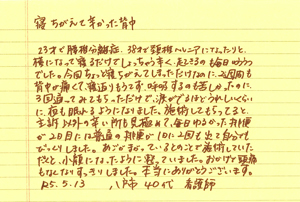 寝ちがえて辛かった背中
23才で腰椎分離症、38才で頚椎ヘルニアになったりと、
横になって寝るだけでしょっちゅう辛く、起きるのも毎日ゆううつ
でした。今回ちょっと寝ちがえてしまっただけなのに、2週間も
背中が痛くて、寝返りもうてず、呼吸するのも苦しかったのに
3回通ってみてもらっただけで、涙がでるほどうれしいくらい
に、夜も眠れるようになりました。施術してもらってると、
主訴以外の辛い所も見極めて、毎日ゆるかった排便
が2日目に1回に出て自分でも
びっくりしました。あごがずれているとのことで施術していた
だくと、小顔になったように整っていました。おかげで頭痛
もなくなりすっきりしました。本当にありがとうございます。
R5.5.13 八戸市 40代 看護師